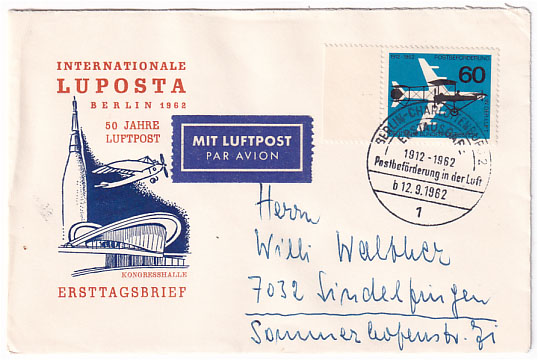 INTERNATIONALE
LUPOSTA
BERLIN 1962
50 JAHRE
LUFTPOST
KONGRESSHALLE
ERSTTAGSBRIEF
MIT LUFTPOST
PAR AVION
1912-1962 POSTBEFÖRDERUNG
60
BERLIN-CHARLOTTENBURG 2
ERSTAUSGABE
1912-1962
Postbeförderung in der Luft
b 12.9.1962
1
Herrn
Willi Walther
7032 Sindelfingen
Sommerhofenstr.